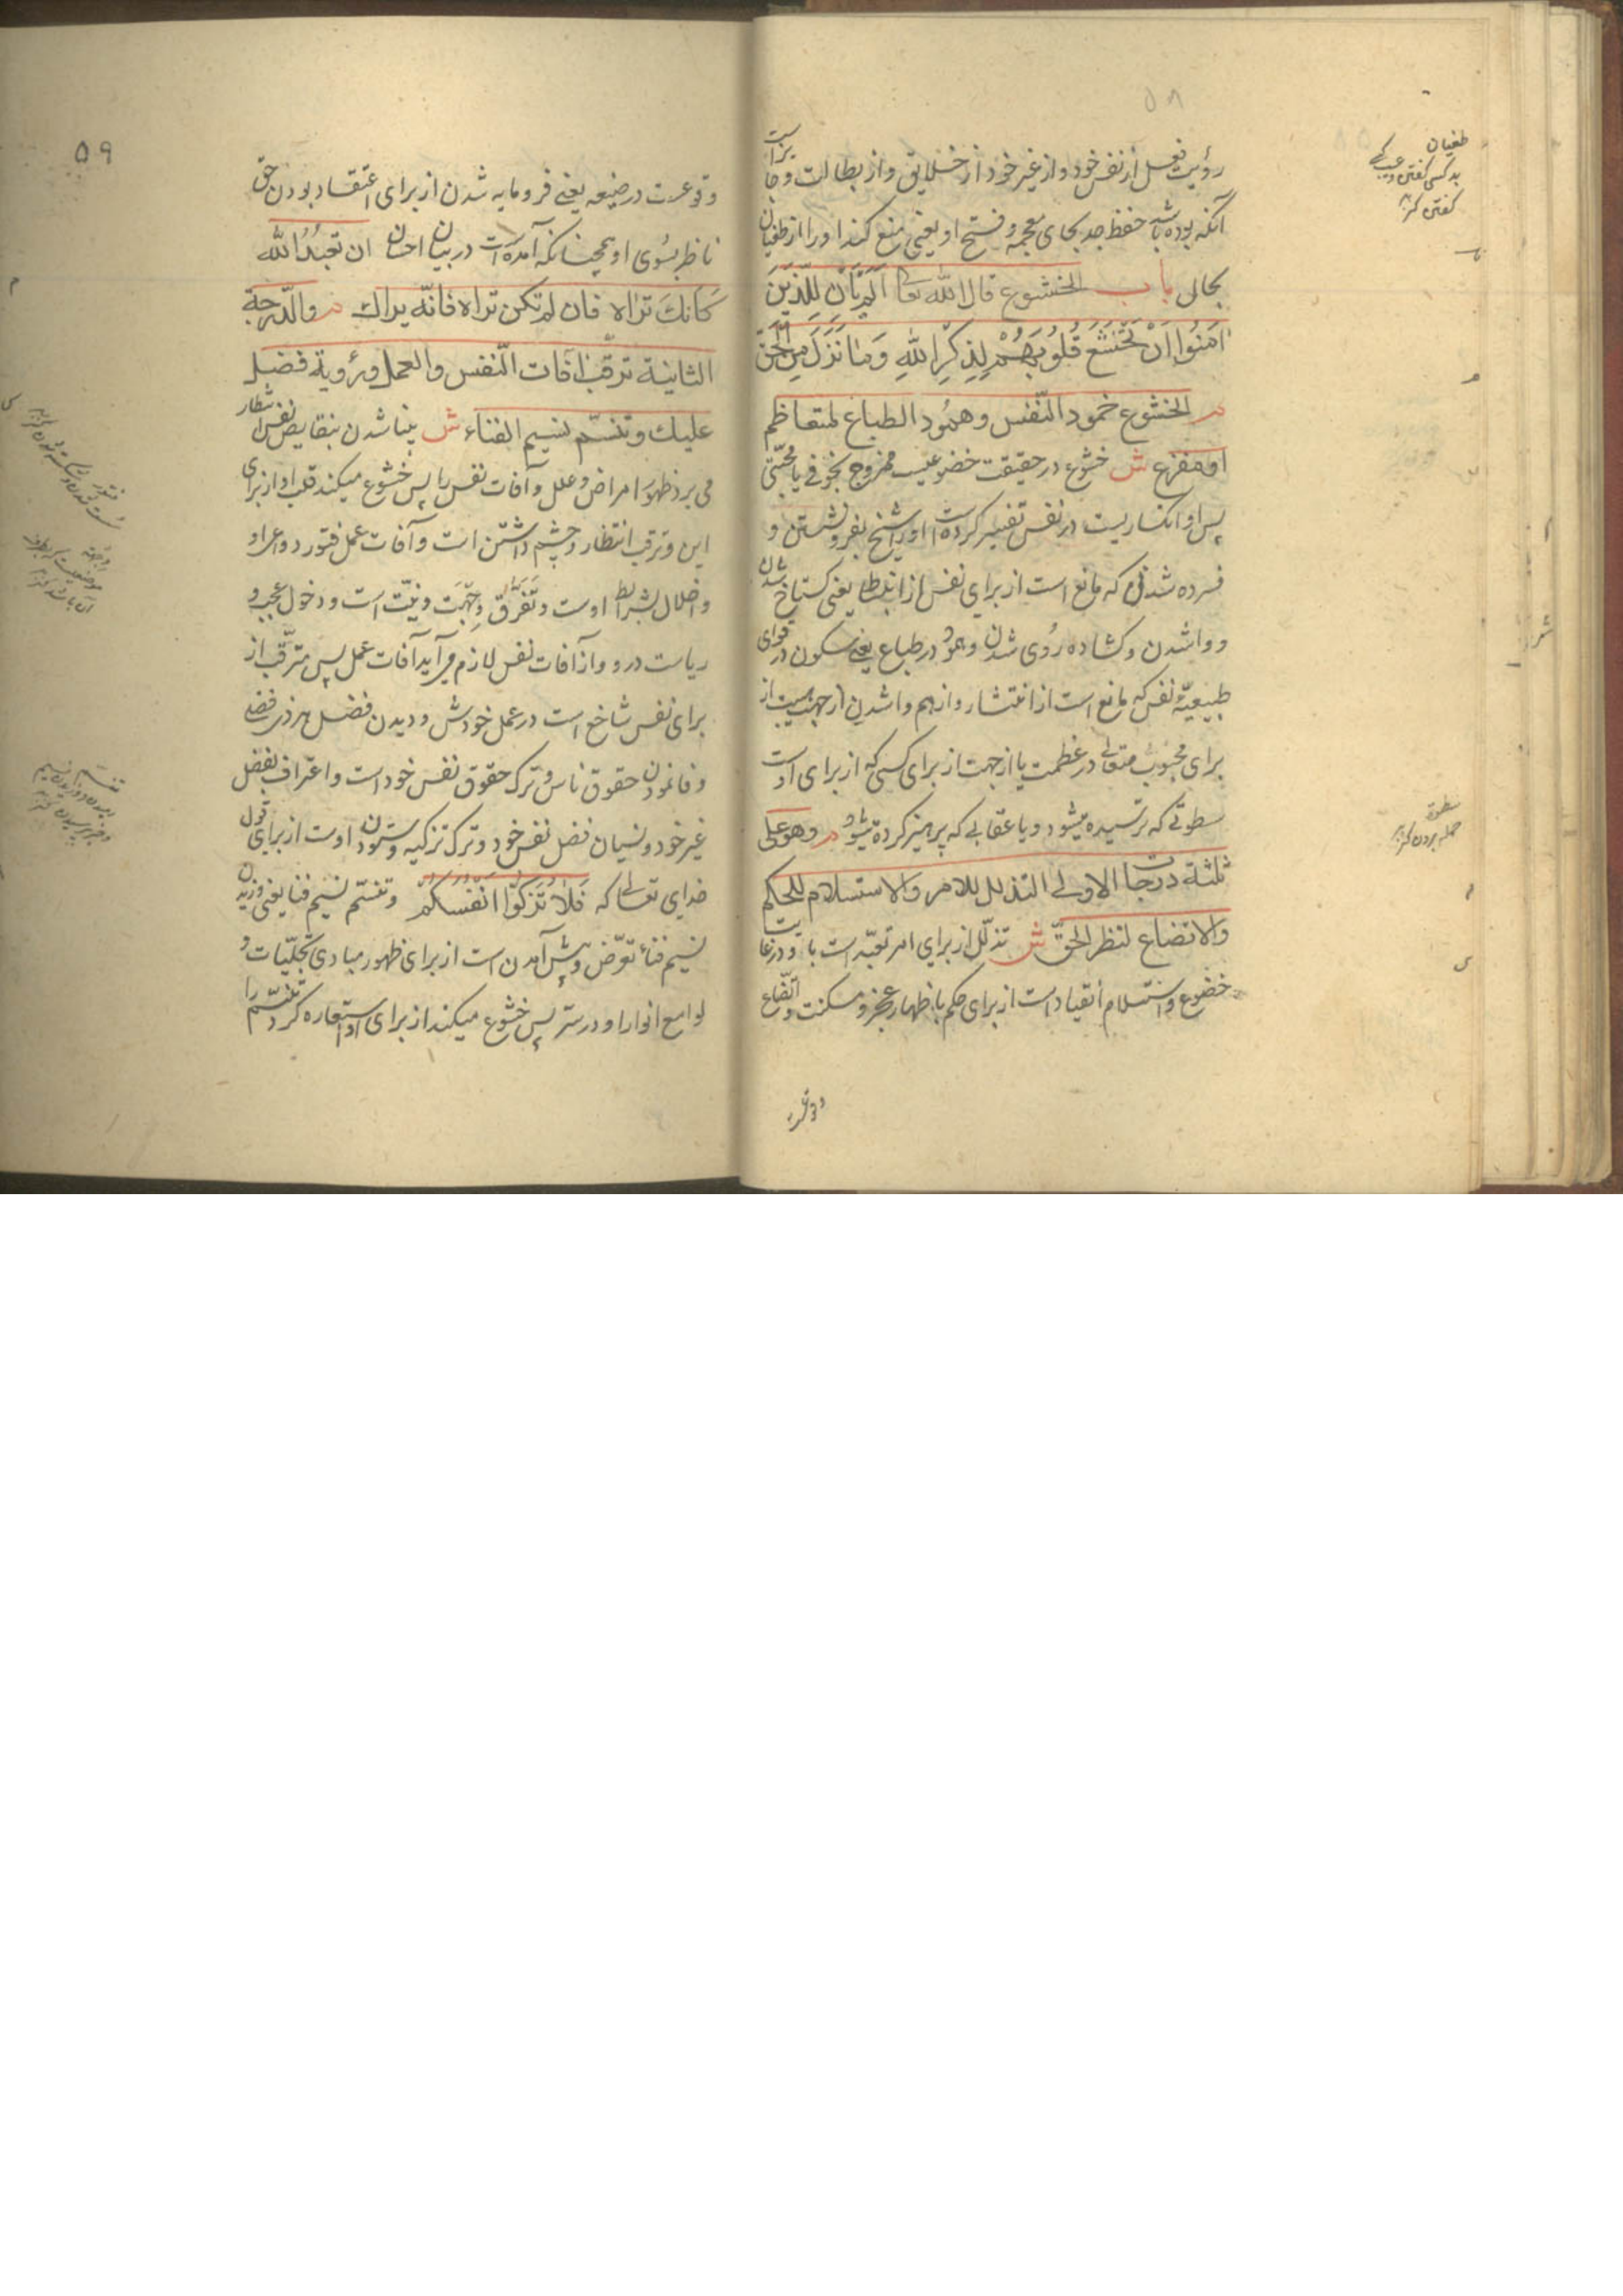 ۵۸
رؤیت فعل از نفس خود و از غیر خود از خلایق و از بطالت و
آنکه بوده باشد حفظ جد بحای معجمه و فتح او یعنی منع کند او را از طغیان
بحالی باب الخشوع قال الله تعا اَلَم یَأنِ لِلَّذِینَ
اٰمَنُوا اَنْ تَخْشَعَ قُلُوبُهُمْ لِذِکْرِ اللهِ وَمَا نَزَلَ مِنَ الْحَقّ
م الخشوع خمود النّفس وهمُود الطباع لمتعاظم
او مفزع ش خشوع در حقیقت خضوعیست ممزوج بخوفی یا محبّتی
پس او انکساریست در نفس تفسیر کرده است او را شیخ بفرونشستن و
فسرده شدنی که مانع است از برای نفس از انبساط یعنی گستاخ شدن
و واشدن و گشاده رُوی شدن و همود در طباع یعنی سکون در قوای
طبیعیّهٔ نفس که مانع است از انتشار و از هم واشدن از جهت هیبت از
برای محبوب متعالی در عظمت یا از جهت از برای کسی که از برای اوست
سطوتی که ترسیده میشود و یا عقابی که پرهیز کرده میشود م وهو علی
ثلثة درجات الاولی التذلل للامر والاستسلام للحکم
والاتضاع لنظر الحقّ ش تذلّل از برای امر تعبّد است با و
خضوع و استسلام انقیاد است از برای حکم با ظهار عجز و مسکنت و اتّضاع
طغیان
سطوة
حمله بردن کنز
۵۹
وقوعست در ضیعه یعنی فرومایه شدن از برای اعتقاد بودن حق
ناظر بسُوی او همچنانکه آمده است در بیان احسان ان تعبُدُ الله
کَاَنکَ تراه فان لم تکن تراه فانّه یراك م والدّرجة
الثانیة ترقب آفات النّفس والعمل ورؤیة فضل
علیك وتنسّم نسیم الفناء ش بینا شدن بنقایص نفس انتظار
می برد ظهور امراض و علل و آفات نفس را پس خشوع میکند قلب او از برای
این و ترقب انتظار و چشم داشتن است و آفات عمل فتور دواعی او
و اخلال بشرایط اوست و تفرّق وِجْهَت و نیّت است و دخول عجب و
ریاست درو و از آفات نفس لازم می آید آفات عمل پس مترقّب از
برای نفس شاخع است در عمل خودش و دیدن فضل هر ذی فضلی
وفا نمودن حقوق ناس و ترک حقوق نفس خود است و اعتراف بفضل
غیر خود و نسیان فضل نفس خود و ترک تزکیه و ستودن اوست از برای قول
خدای تعالی که فَلَا تُزَکُّوا اَنْفُسَکُمْ و تنسّم نسیم فنا یعنی وزیدن
نسیم فناء تعرّض و پیش آمدن است از برای ظهور مبادی تجلّیات و
لوامع انوار او در ستر پس خشوع میکند از برای او استعاره کرد تنسّم را